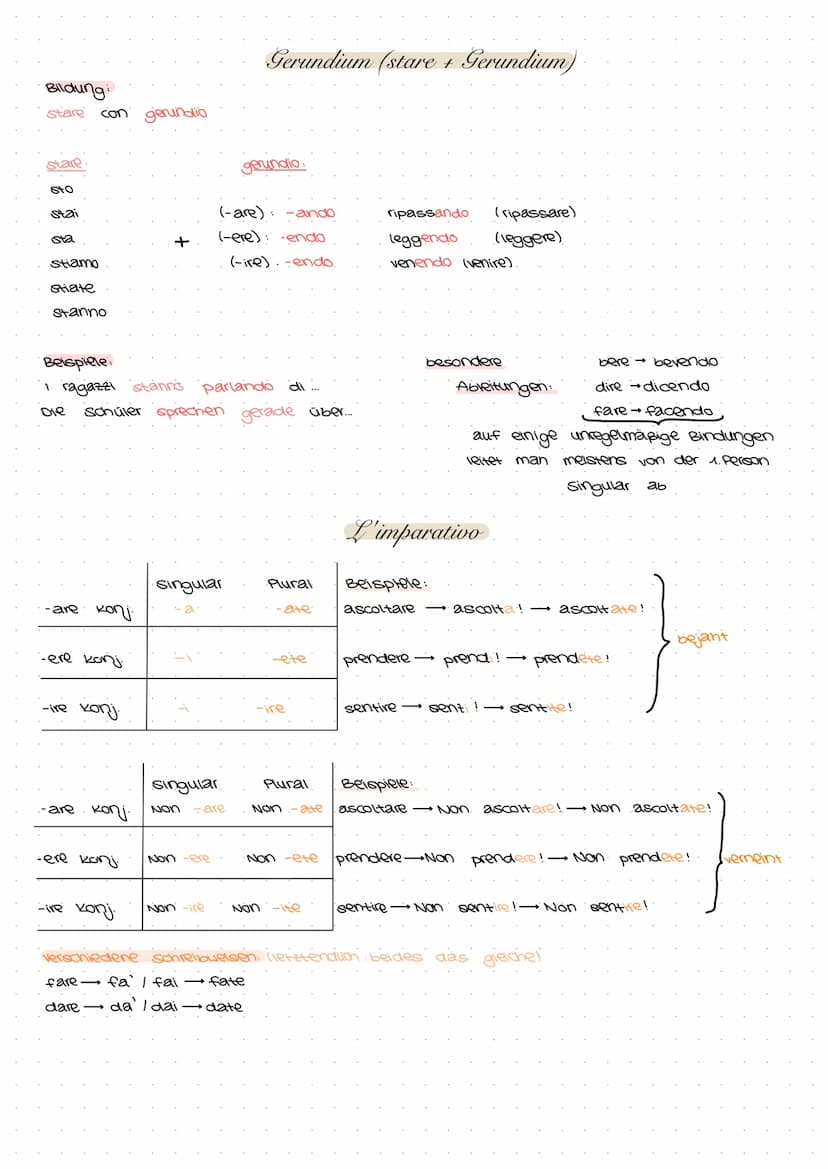 Gerundium (stare + Gerundium)
Bildung:
stare con gerundio
stare: gerundio:
sto
stai (-are): -ando ripassando (ripassare)
sta + (-ere): -endo leggendo (leggere)
stiamo (-ire): -endo venendo (venire)
stiate
stanno
Beispiele: besondere bere → bevendo
i ragazzi stanno parlando di ... Ableitungen: dire → dicendo
Die Schüler sprechen gerade über... fare → facendo
auf einige unregelmäßige Bindungen
leitet man meistens von der 1. Person
Singular ab
L'imparativo
Singular Plural Beispiele:
-are Konj. -a -ate ascoltare → ascolta! → ascoltate!
bejaht
-ere Konj. -i -ete prendere → prendi! → prendete!
-ire Konj. -i -ire sentire → senti! → sentite!
Singular Plural Beispiele:
-are Konj. Non -are Non -ate ascoltare → Non ascoltare! → Non ascoltate!
-ere Konj. Non -ere Non -ete prendere → Non prendere! → Non prendete! verneint
-ire Konj. Non -ire Non -ite sentire → Non sentire! → Non sentite!
verschiedene Schreibweisen (letztendlich beides das gleiche)
fare → fa' / fai → fate
dare → da' / dai → date